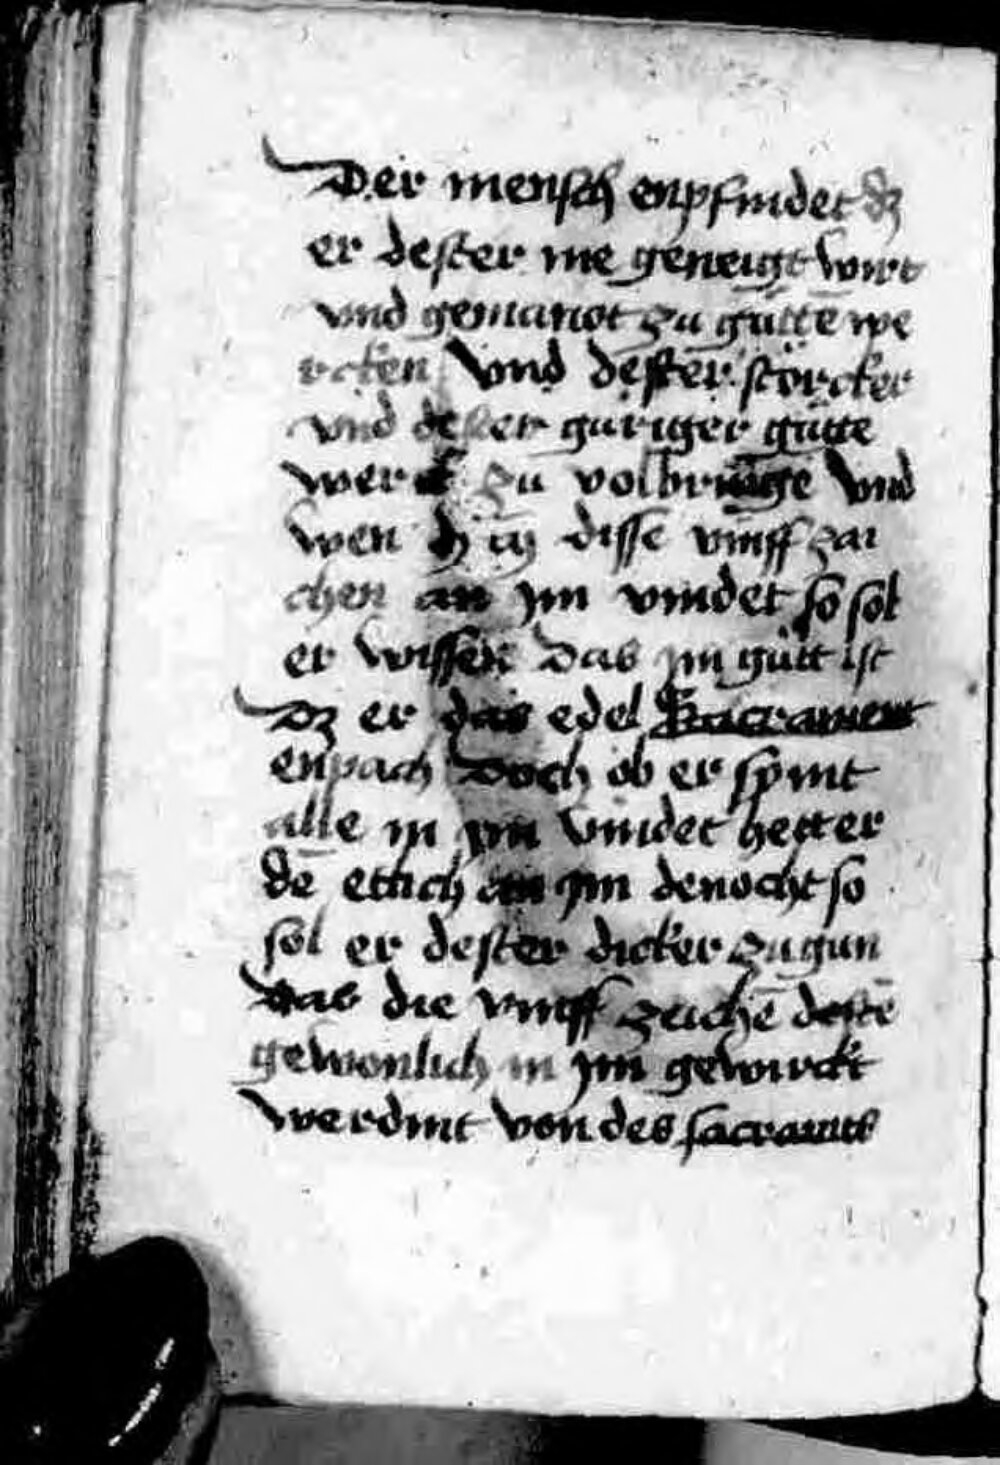 Der mensch enpfindet dz
er dester me geneigt wirt
vnd gemanot zu gůttē we
rcken vnd dester störcker
vnd dester giriger gůtte
werck zu volbringe vnd
wen disse vinff zai
chen an ym vindet so sol
er wissen das ym gůtt ist
Dz er das edel Sacrament
enpach Doch ob er sy nit
alle in ym vindet hetter
dē etlich an ym denocht so
sol er dester dicker zu gun
das die vinff zeichē destē
gewonlich in ym gewirckt
werdint von des sacramēts